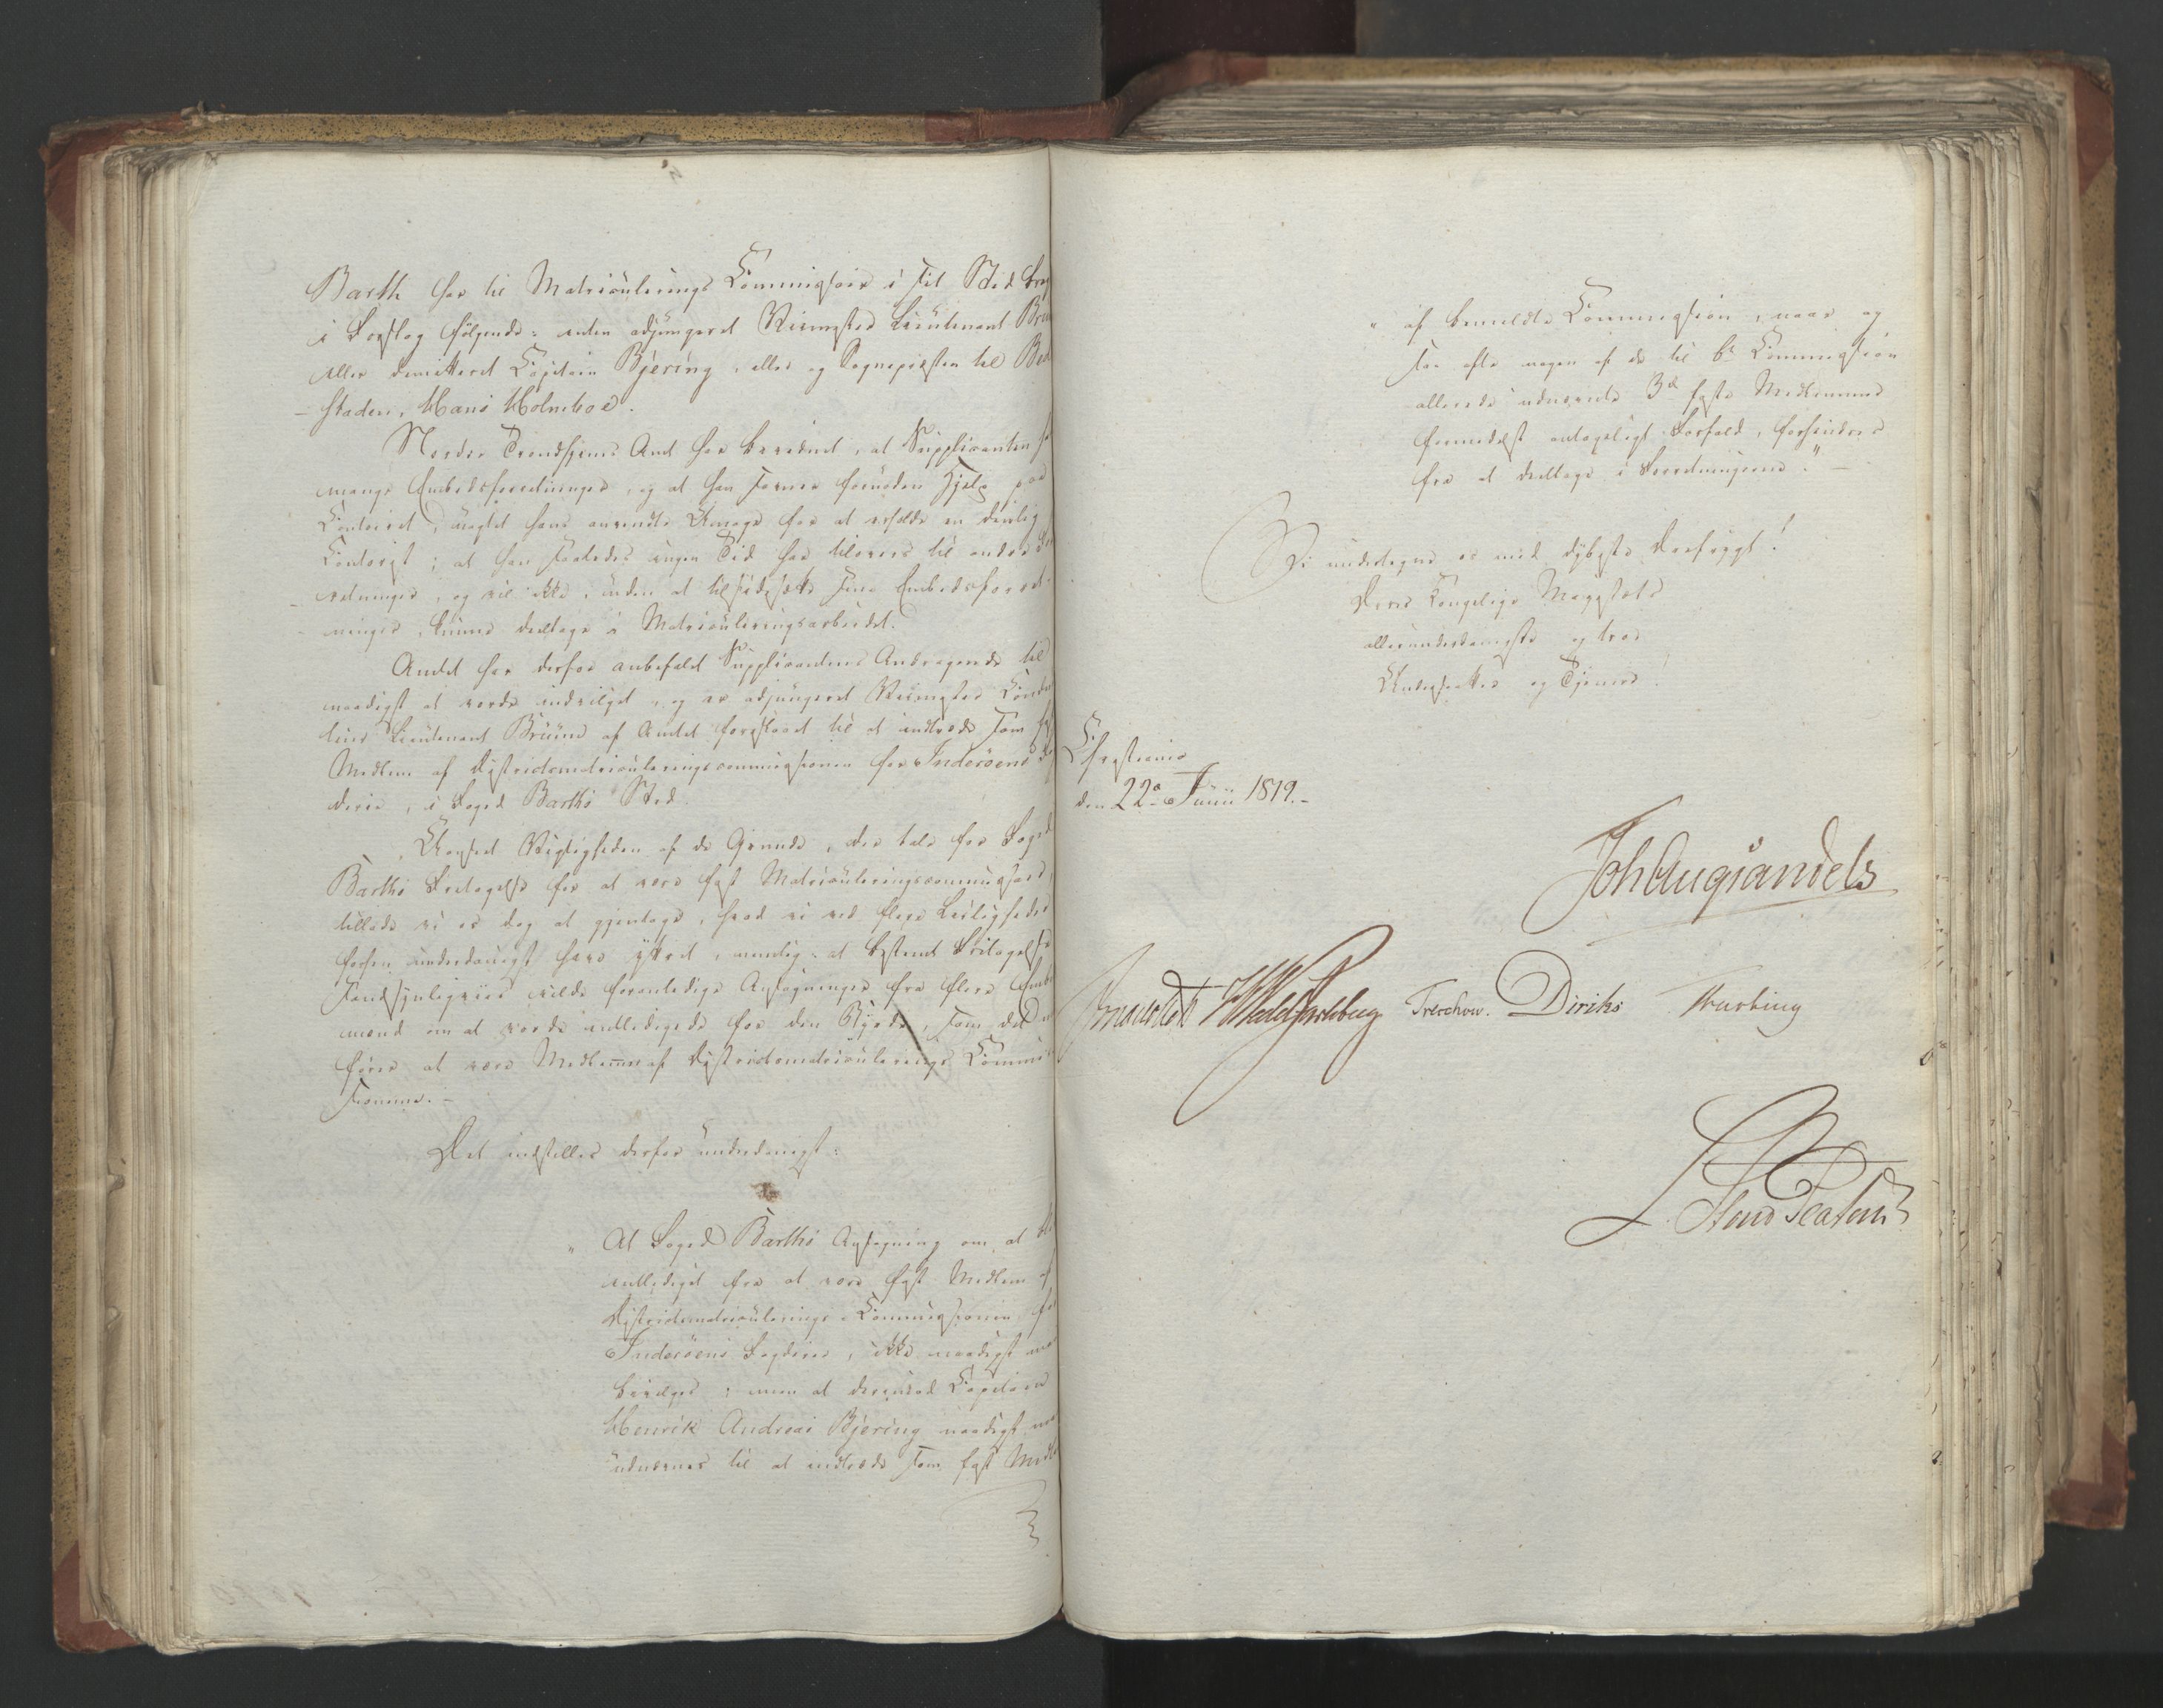 Barth har til Matriculerings Commissair i sit Sted bragt
i Forslag følgende: enten adjungeret Riimester Lieutenant Bru
eller demitteret Capitain Bjering, eller og Sognepresten til Bed
-staden, Hans Holmboe.
Nordre Trondhjems Amt har bevidnet, at Supplicanten ha
mange Embedsforretninger, og at han savner fornøden Hjelp paa
Contoiret, uagtet hans anvendte Umage for at erholde en duelig
Contorist; at han saaledes ingen Tid har tilovers til andre For
-retninger, og vil ikke, uden at tilsidesætte sine Embedsforret-
-ninger, kunne deeltage i Matriculeringsarbeidet.
Amtet har derfor anbefalet Supplicantens Andragende til
naadigst at vorde indvilget, og er adjungeret Riimester
Lieutenant Bruun af Amtet foreslaaet til at indtræde som fast
Medlem af Districtsmatriculeringscommissionen for Inderøens Fog
derie, i Foged Barths Sted.
Uanseet Vigtigheden af de Grunde, der tale for Foged
Barths Fritagelse for at være fast Matriculeringscommissair,
tillade vi os dog at gjentage, hvad vi ved flere Leiligheder
forhen underdanigst have yttret, nemlig: at bestemt Fritagelse
sandsynligviis vilde foranledige Ansøgninger fra flere Embeds
mænd om at vorde entledigede for den Byrde, som det med
fører at være Medlemmer af Districtsmatriculerings Commis
sionerne. -
Det indstilles derfor underdanigst:
" At Foged Barths Ansøgning om at bli
entlediget fra at være fast Medlem af
Districtsmatriculerings-Commissionen for
Inderøens Fogderie, ikke naadigst maa
bevilges; men at Capitain
Henrik Andreas Bjering naadigst maa
udnævnes til at indtræde som fast Medl
" af bemeldte Commission, naar og
saa ofte nogen af de til bte Commission
allerede udnævnte 3de faste Medlemmer
formedelst antageligt Forfald, forhindres
fra at deeltage i Forretningerne." -
Vi undertegne os med dybeste Ærefrygt!
Deres Kongelige Majestæts
allerunderdanigste og troe
Undersaatter og Tjenere!
Christiania
den 22de Junii 1819. -
Joh Aug Sandels
Wedel Jarlsberg Treschow. Diriks